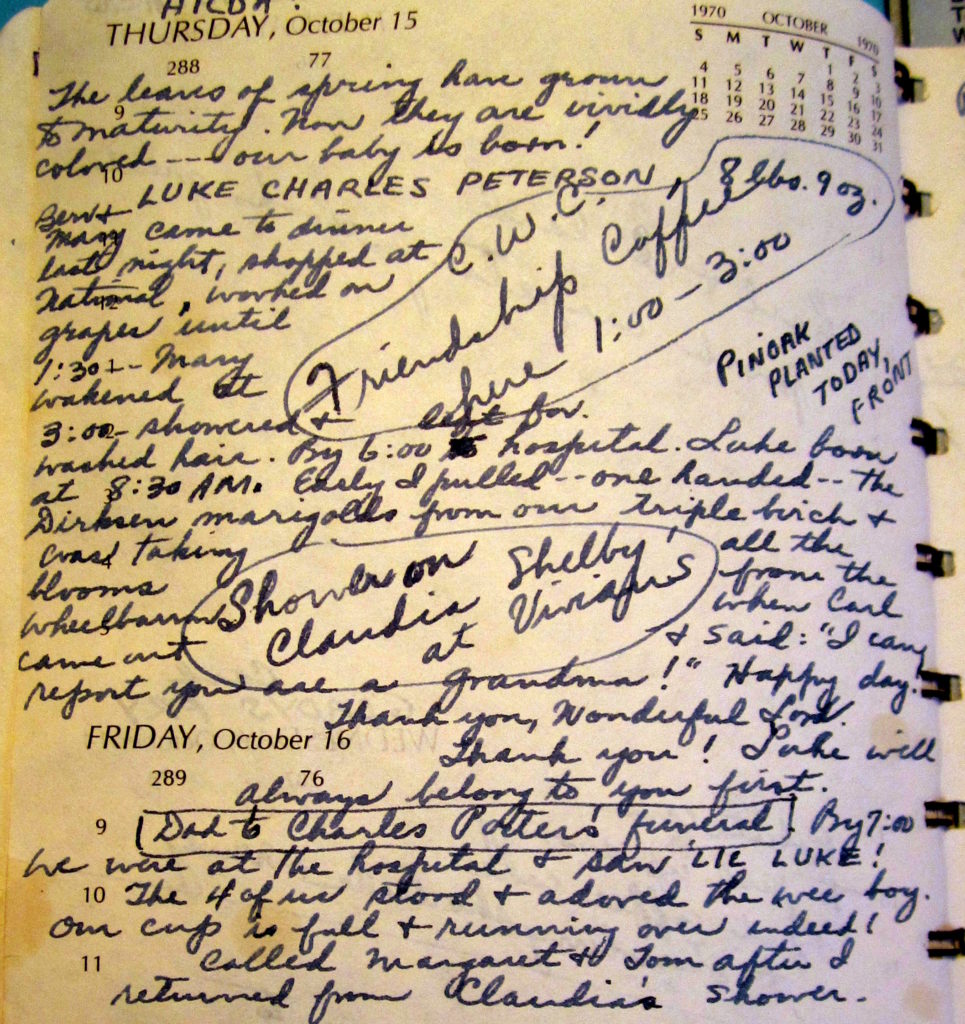 HILDA.
THURSDAY, October 15
288 77
1970 OCTOBER 1970
S M T W T F S
1 2 3
4 5 6 7 8 9 10
11 12 13 14 15 16 17
18 19 20 21 22 23 24
25 26 27 28 29 30 31
The leaves of spring have grown
9
to maturity. Now they are vividly
colored --- our baby is born!
10
LUKE CHARLES PETERSON, 8 lbs. 9 oz.
Ben +
Mary came to dinner
last night, shopped at
National, worked on
grapes until
1:30 -- Mary
wakened at
3:00 - showered +
left for
washed hair. By 6:00 hospital. Luke born
at 8:30 AM. Early I pulled -- one handed -- the
Dirksen marigolds from our triple birch +
was taking all the
blooms from the
wheelbarrow when Carl
came out + said: "I can
report you are a grandma!" Happy day.
Thank you, Wonderful Lord.
C.W.C.
Friendship Coffee
here 1:00 - 3:00
PINOAK
PLANTED
TODAY,
FRONT
Shower on Shelby
Claudia
at Vivian's
FRIDAY, October 16
Thank you! Luke will
289 76
always belong to you first.
9
Dad to Charles Porters' funeral. By 7:00
we were at the hospital + saw 'LIL LUKE!
10
The 4 of us stood + adored the wee boy.
Our cup is full + running over indeed!
11
Called Margaret + Tom after I
returned from Claudia's shower.